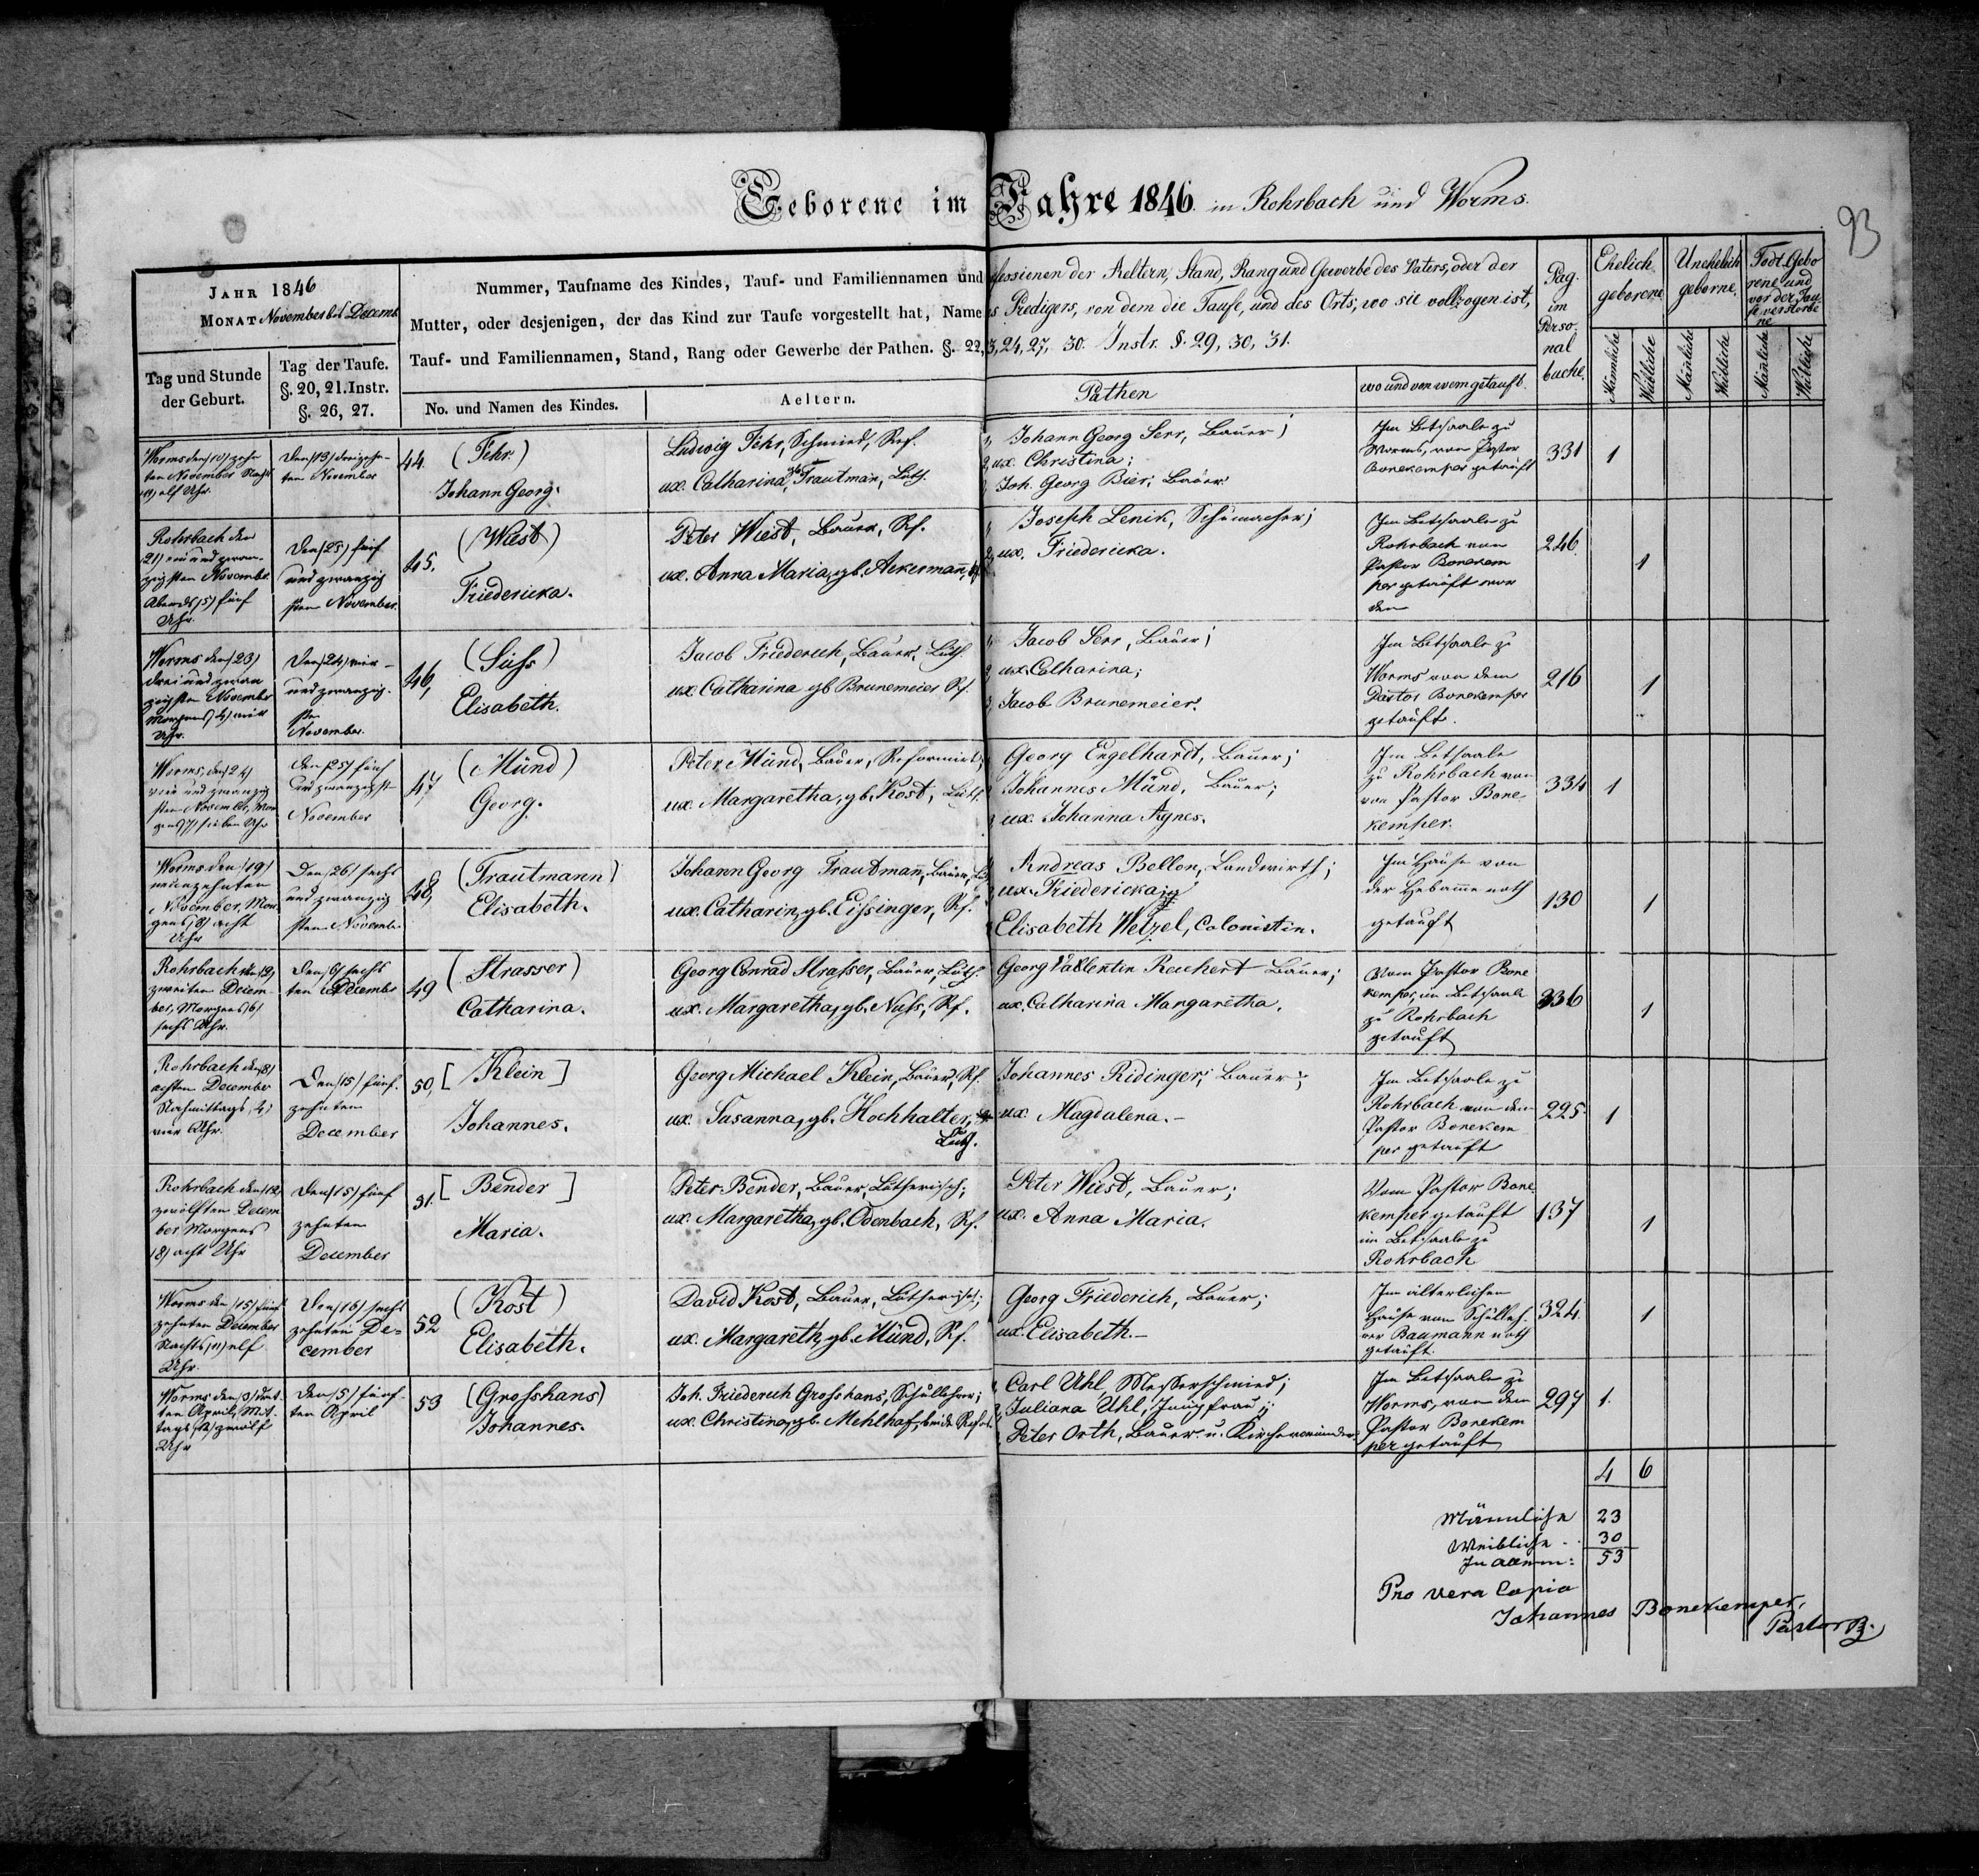 Geborene im Jahre 1846 in Rohrbach und Worms.
93
JAHR 1846
MONAT November bis Decemb.
Tag und Stunde
der Geburt.
Tag der Taufe.
§. 20, 21. Instr.
§. 26, 27.
Nummer, Taufname des Kindes, Tauf- und Familiennamen und
Mutter, oder desjenigen, der das Kind zur Taufe vorgestellt hat, Name
Tauf- und Familiennamen, Stand, Rang oder Gewerbe der Pathen. §. 22,
No. und Namen des Kindes.
Aeltern.
fessionen der Aeltern, Stand, Rang und Gewerbe des Vaters, oder der
s Predigers, von dem die Taufe, und des Orts, wo sie vollzogen ist,
3, 24, 27, 30. Instr. §. 29, 30, 31.
Pathen
wo und von wem getauft.
Pag.
im
Perso
nal
buche.
Ehelich
geborene
Unehelich
geborne.
Todt Gebo
rene und
vor der Tau
fe verstorbe
ne
Männliche
Weibliche
Männliche
Weibliche
Männliche
Weibliche
Worms den (10) zehn
ten November Nachts
(11) elf Uhr.
Den (13) dreizehn-
ten November
44.
(Fehr)
Johann Georg.
Ludwig Fehr, Schmied, Ref.
ux. Catharina, gb. Trautman, Luth.
1, Johann Georg Serr, Bauer;
2, ux. Christina;
Joh. Georg Bier, Bauer
Im Betsaale zu
Worms, von Pastor
Bonekemper getauft
331
1
Rohrbach den
(21) ein und zwan-
zigsten November
Abends (5) fünf
Uhr.
Den (25) fünf
und zwanzig
sten November.
45.
(Wiest)
Friedericka.
Peter Wiest, Bauer, Rf.
ux. Anna Maria, gb. Akermañ, Rf.
Joseph Lenik, Schumacher;
2, ux. Friedericka.
Im Betsaale zu
Rohrbach von
Pastor Bonekem
per getauft wor
den
246
1
Worms den (23)
drei und zwan
zigsten November
Morgens (4) vier
Uhr.
Den (24) vier-
und zwanzig-
sten
November.
46,
(Süss)
Elisabeth.
Jacob Friederich, Bauer, Luth.
ux. Catharina gb Brunemeier Rf.
1, Jacob Serr, Bauer;
2, ux. Catharina;
3, Jacob Brunemeier.
Im Betsaale zu
Worms von dem
Pastor Bonekemper
getauft.
216
1
Worms, den (24)
vier und zwanzig
sten November, Mor
gens (7) sieben Uhr
Den (25) fünf
und zwanzigst
November
47
(Münd)
Georg.
Peter Münd, Bauer, Reformirt;
ux. Margaretha, gb. Kost, Luth.
Georg Engelhardt, Bauer;
Johannes Münd, Bauer;
ux. Johanna Agnes.
Im Betsaale
zu Rohrbach von
von Pastor Bone-
kemper.
334
1
Worms den (19)
neunzehnten
November, Mor
gens (8) acht
Uhr
Den (26) sechs
und zwanzig
sten Novembr
48,
(Trautmann)
Elisabeth.
Johann Georg Trautman, Bauer, Lut
ux. Catharin, gb. Eissinger, Rf.
Andreas Bellon, Landwirth;
ux. Friedericka;
Elisabeth Wetzel, Colonistin.
Im Hause von
der Hebame noth
getauft
130
1
Rohrbach den (2)
zweiten Decem-
ber, Morgens (6)
sechs Uhr.
Den (6) sechs
ten December
49
(Strasser)
Catharina.
Georg Conrad Strasser, Bauer, Luth.
ux. Margaretha, gb. Nuss, Rf.
Georg Vallentin Reichert Bauer;
ux. Catharina Margaretha.
Vom Pastor Bone
kemper, im Betsaale
zu Rohrbach
getauft
336
1
Rohrbach den (8)
achten December
Nachmittags, (4)
vier Uhr.
Den (15) fünf-
zehnten
December
50,
[Klein]
Johannes.
Georg Michael Klein, Bauer, Rf.
ux. Susanna, gb. Hochhalter,
Luth.
Johannes Ridinger; Bauer;
ux. Magdalena.-
Im Betsaale zu
Rohrbach von dem
Pastor Bonekem
per getauft
225
1
Rohrbach den (12)
zwölften Decem
ber Morgens
(8) acht Uhr
Den (15) fünf
zehnten
December
51.
[Bender]
Maria.
Peter Bender, Bauer, Lutherisch;
ux. Margaretha, gb. Odenbach, Rf.
Peter Wiest, Bauer;
ux. Anna Maria.
Vom Pastor Bone-
kemper getauft
im Betsaale zu
Rohrbach
137
1
Worms den (15) fünf
zehnten December
Nachts (11) elf
Uhr.
Den (16) sechs
zehnten De-
cember
52
(Kost)
Elisabeth.
David Kost, Bauer, Lutherisch;
ux. Margareth, gb. Münd, Rf.
Georg Friederich, Bauer;
ux. Elisabeth.-
Im älterlichen
Hause vom Schulleh-
rer Baumann noth
getauft.
324
1
Worms den (3) drit-
ten April, Mit-
tags (12) zwölf
Uhr
Den (5) fünf-
ten April
53
(Grosshans)
Johannes.
Joh. Friederich Grosshans, Schullehrer;
ux. Christina, gb. Mehlhaf, beide Refor.
Carl Uhl, Messerschmied;
2, Juliana Uhl, Jungfrau;
Peter Orth, Bauer u. Kirchenvormünder
Im Betsaale zu
Worms, von dem
Pastor Bonekem
per getauft
297
1.
4 6
Männliche 23
Weibliche . . 30
In allem: 53
Pro vera Copia
Johannes Bonekemper,
Pastor